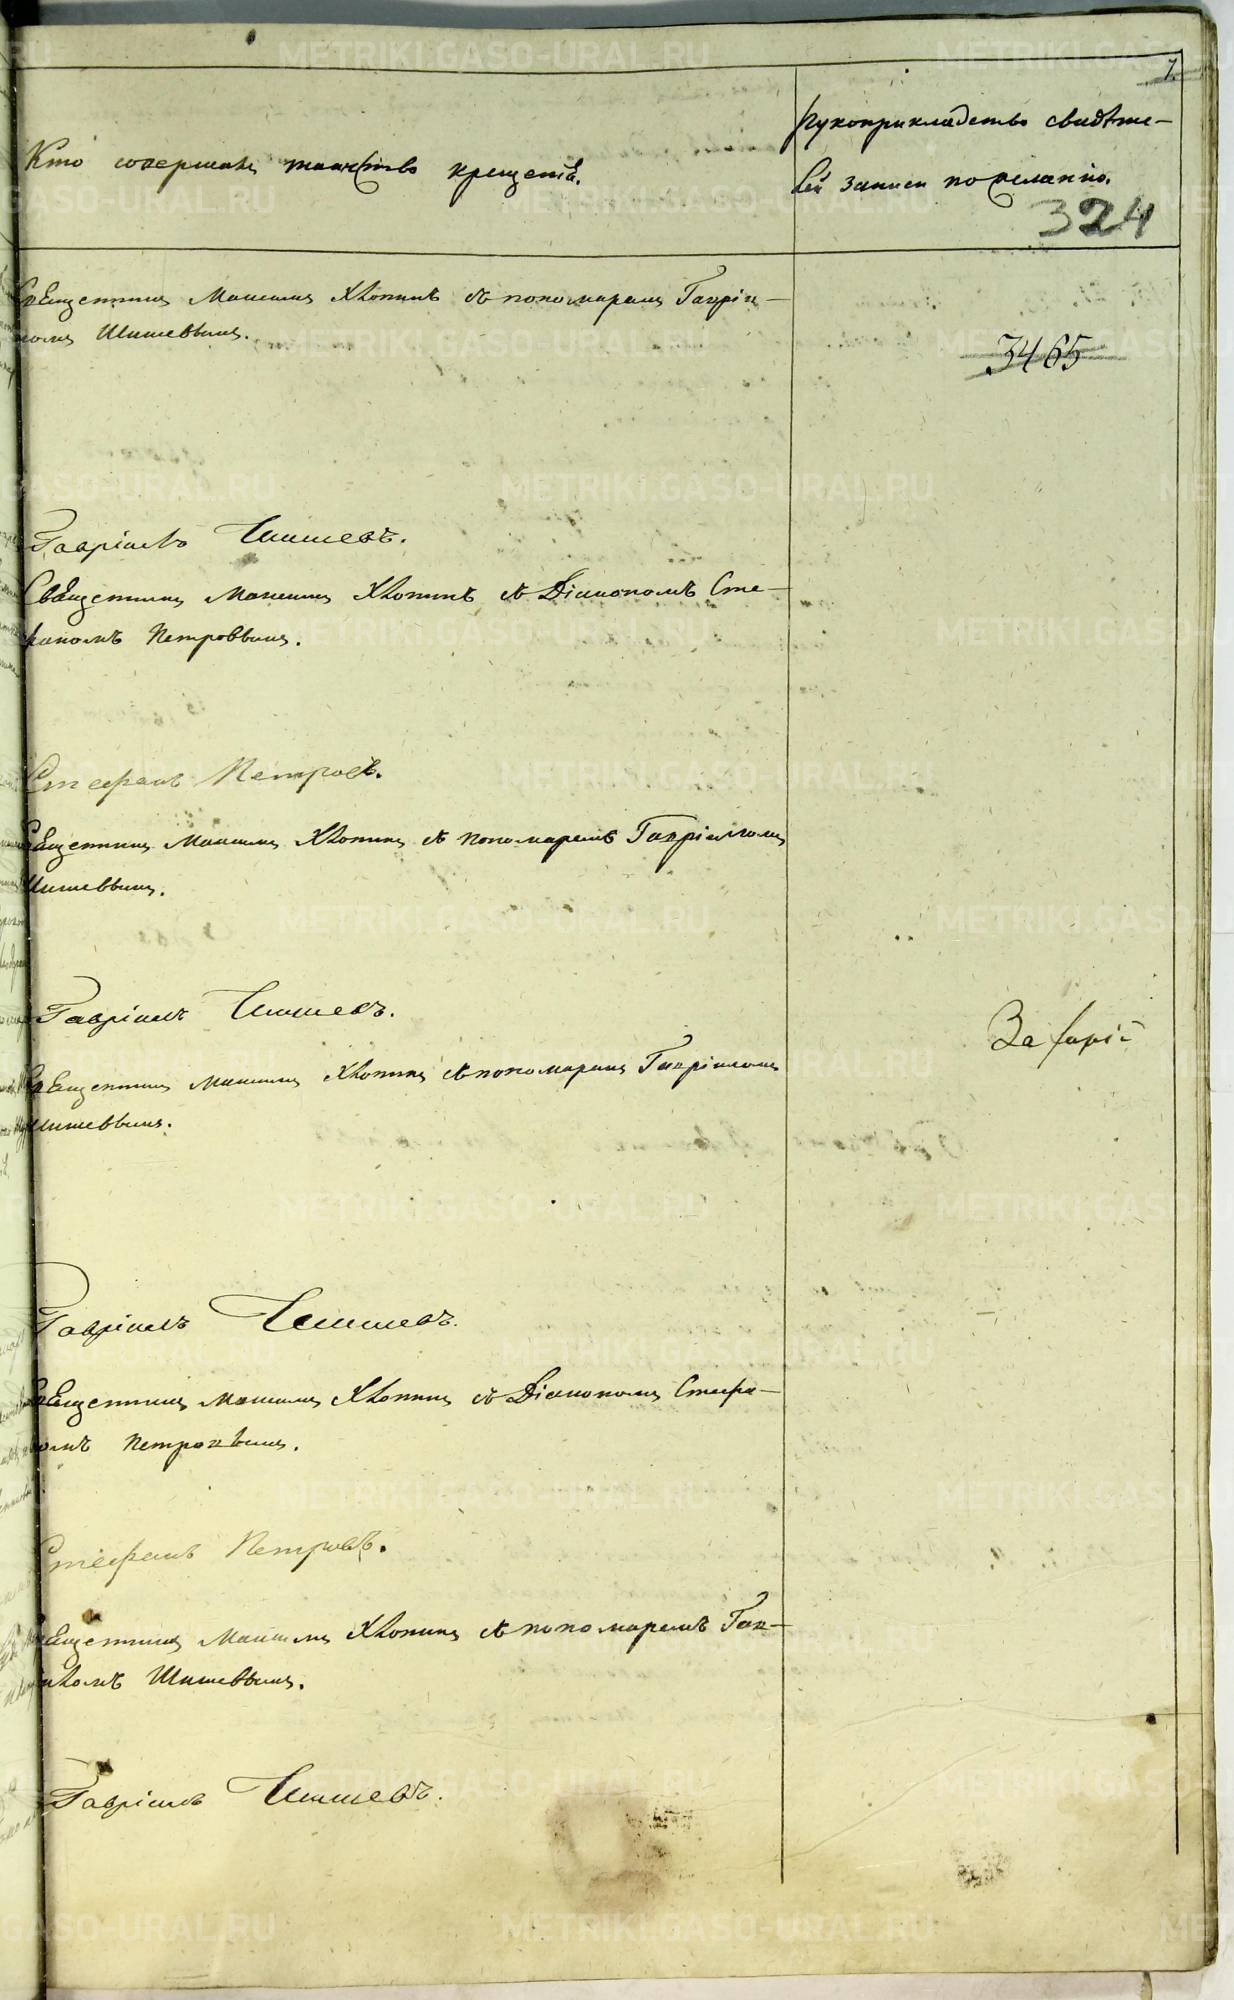 7.
Кто совершалъ таинство крещенія.
Рукоприкладство свидѣте-
лей записи по желанію.
324
Священникъ Максимъ Хлопинъ съ пономаремъ Гаврiи-
ломъ Шишевымъ.
3465
Гавріилъ Шишевъ.
Священникъ Максимъ Хлопинъ съ Діакономъ Сте-
фаномъ Петровымъ.
Стефанъ Петровъ.
Священникъ Максимъ Хлопинъ съ пономаремъ Гавріиломъ
Шишевымъ.
Гавріилъ Шишевъ.
Священникъ Максимъ Хлопинъ съ пономаремъ Гавріиломъ
Шишевымъ.
Гавріилъ Шишевъ.
Священникъ Максимъ Хлопинъ съ Діакономъ Стефа-
номъ Петровымъ.
Стефанъ Петровъ.
Священникъ Максимъ Хлопинъ съ пономаремъ Гав-
ріиломъ Шишевымъ.
Гавріилъ Шишевъ.
METRIKI.GASO-URAL.RU